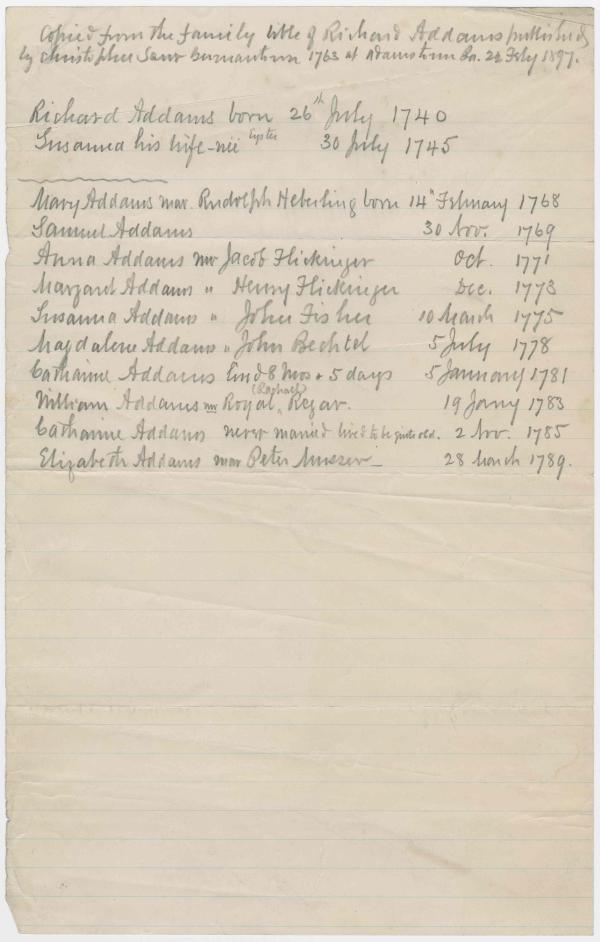 Copied from the family bible of Richard Addams published
by Christopher Saur Germantown 1763 at Adamstown Pa. 22 Feby 1897.
Richard Addams born 26th July 1740
Susanna his wife - née Eyster 30 July 1745
Mary Addams mar. Rudolph Heberling born 14th February 1768
Samuel Addams 30 Nov. 1769
Anna Addams mar Jacob Flickinger Oct. 1771
Margaret Addams " Henry Flickinger Dec. 1773
Susanna Addams " John Fisher 10 March 1775
Magdalene Addams " John Bechtel 5 July 1778
Catharine Addams lived 8 mos & 5 days 5 January 1781
William Addams mar Royal (Rachael) Regar. 19 Jany 1783
Catharine Addams never married lived to be quite old. 2 Nov. 1785
Elizabeth Addams mar Peter Musser - 28 March 1789.